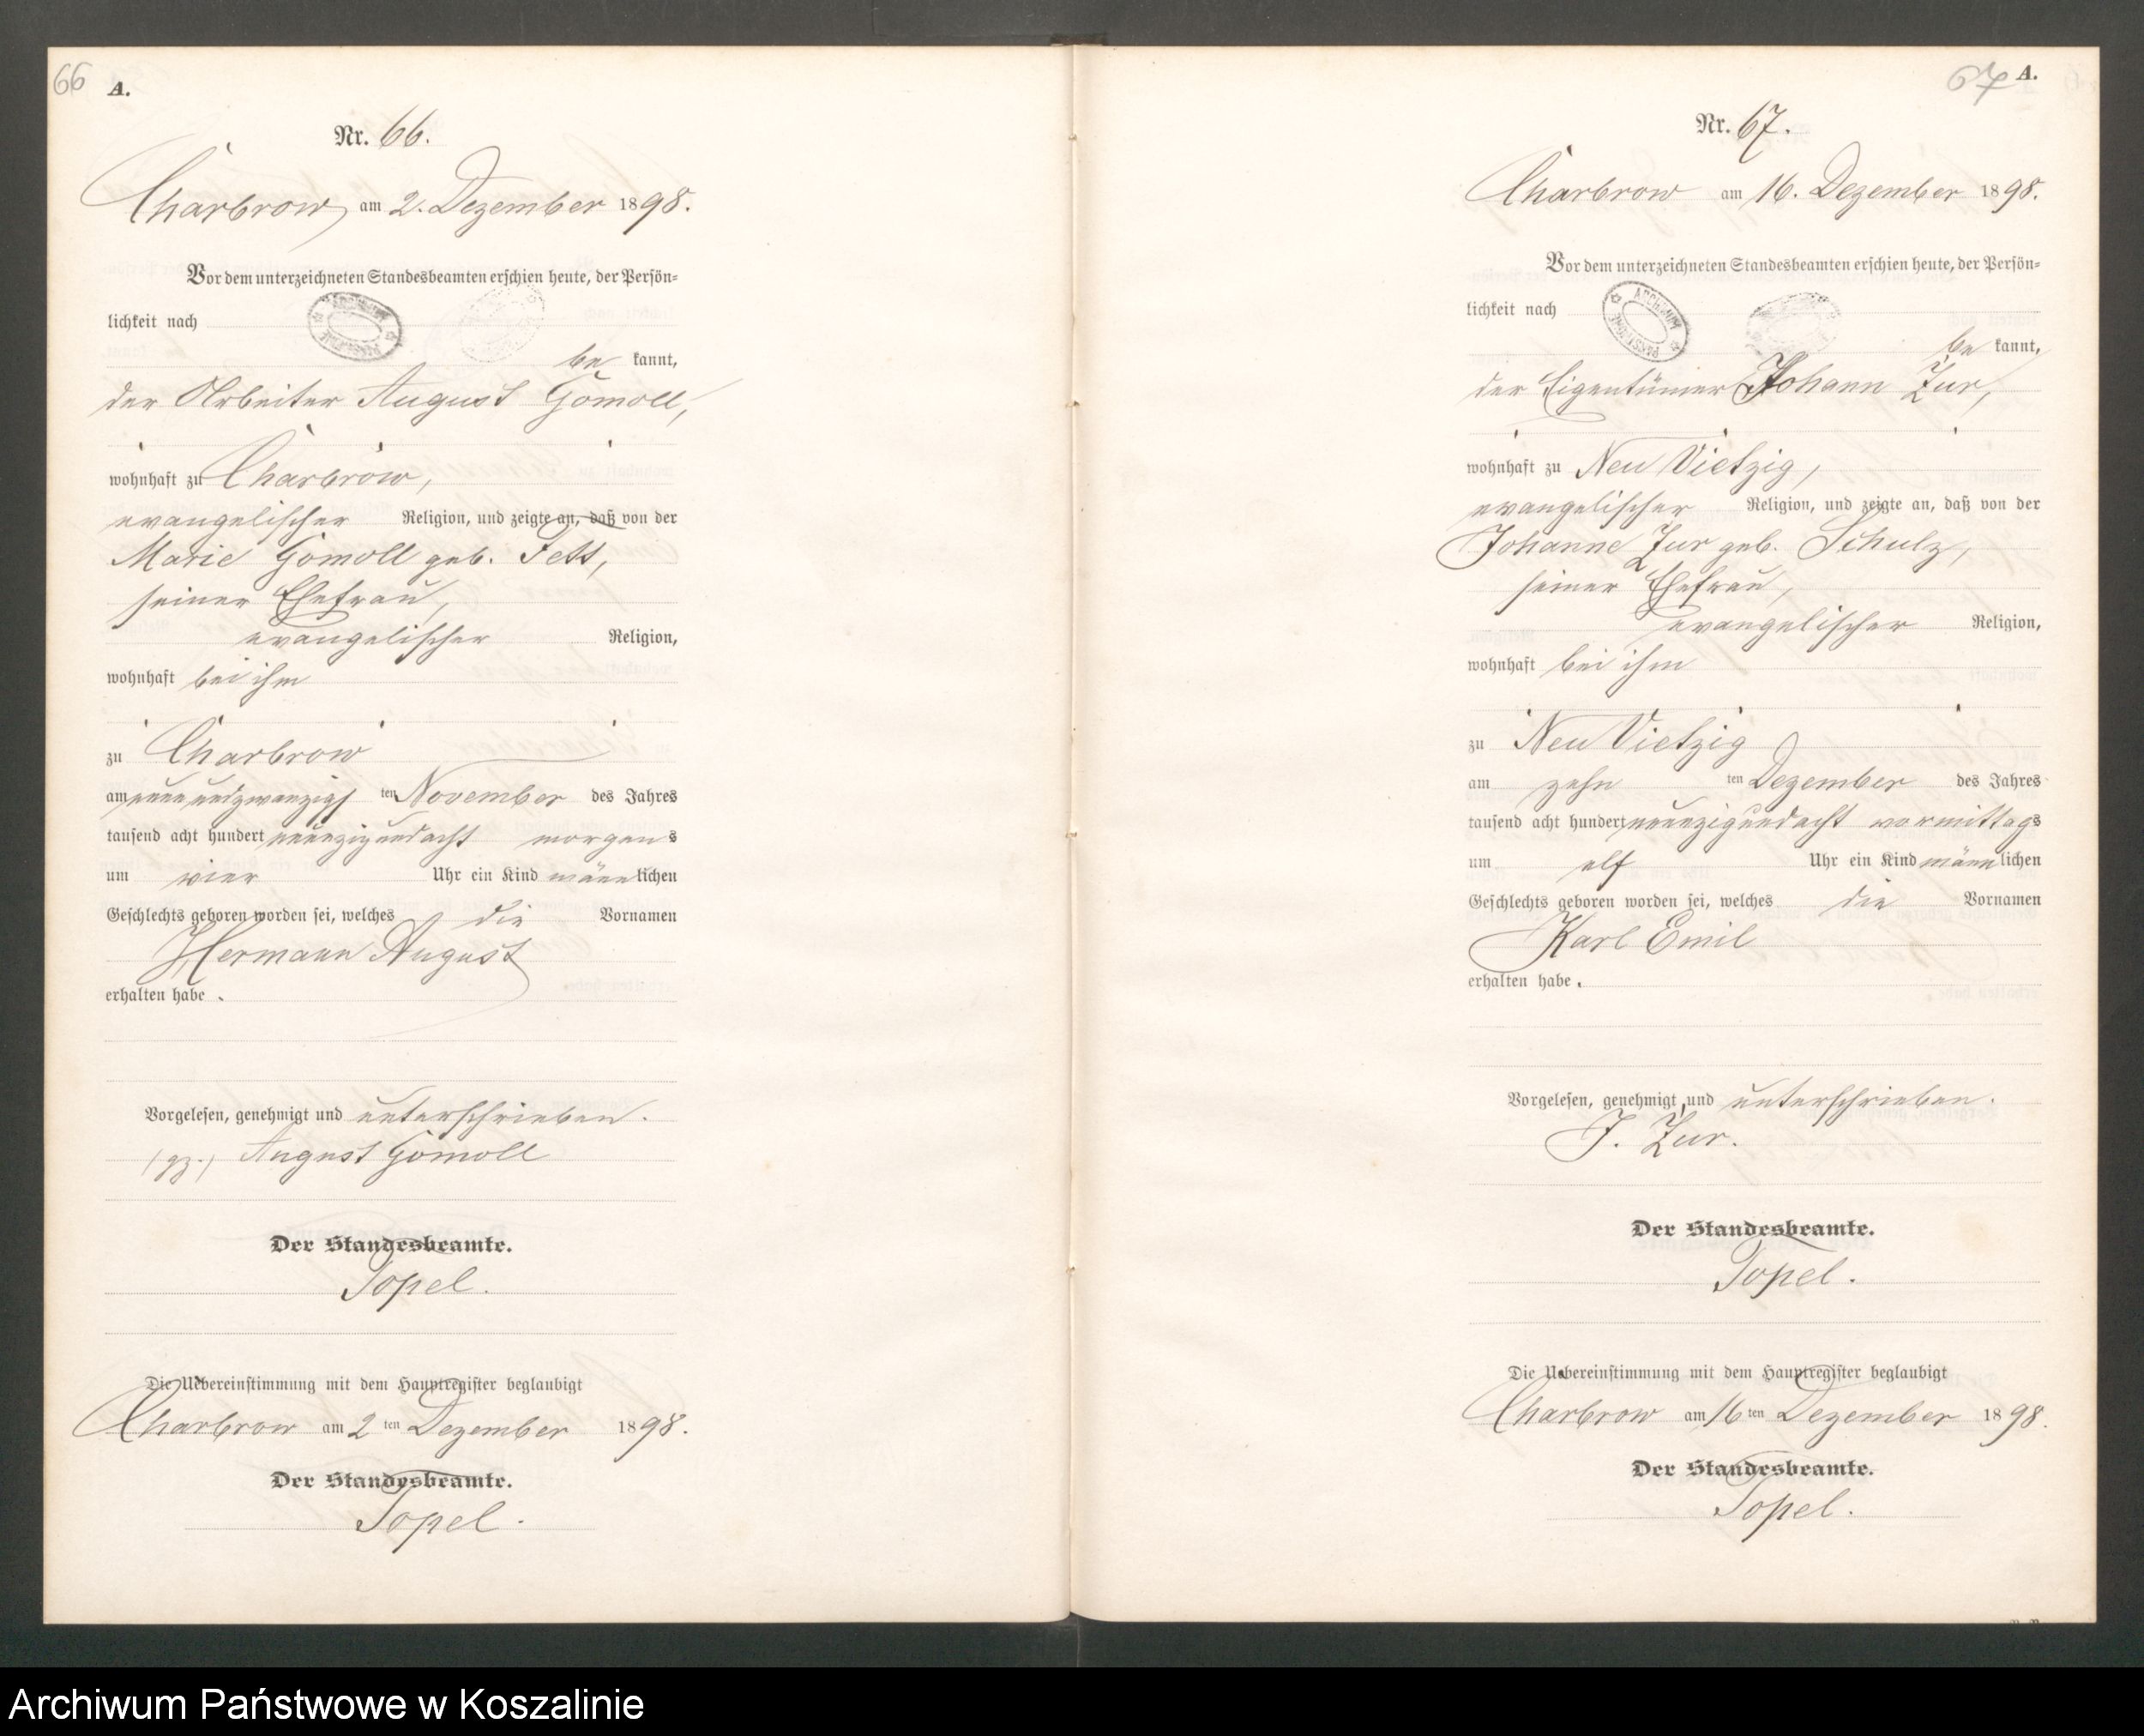 66
A.
Nr. 66.
Charbrow, am 2. Dezember 1898.
Vor dem unterzeichneten Standesbeamten erschien heute, der Persön-
lichkeit nach
be kannt,
der Arbeiter August Gomoll,
wohnhaft zu Charbrow,
evangelischer Religion, und zeigte an, daß von der
Marie Gomoll geb. Fett,
seiner Ehefrau,
evangelischer Religion,
wohnhaft bei ihm
zu Charbrow
am neunundzwanzigs ten November des Jahres
tausend acht hundert neunzigundacht morgens
um vier Uhr ein Kind männlichen
Geschlechts geboren worden sei, welches die Vornamen
Hermann August
erhalten habe.
Vorgelesen, genehmigt und unterschrieben.
(gz.) August Gomoll
Der Standesbeamte.
Topel.
Die Uebereinstimmung mit dem Hauptregister beglaubigt
Charbrow am 2ten Dezember 1898.
Der Standesbeamte.
Topel.
67
A.
Nr. 67.
Charbrow am 16. Dezember 1898.
Vor dem unterzeichneten Standesbeamten erschien heute, der Persön-
lichkeit nach
ARCHIWUM
be kannt,
der Eigentümer Johann Zur,
wohnhaft zu Neu Vietzig,
evangelischer Religion, und zeigte an, daß von der
Johanne Zur geb. Schulz,
seiner Ehefrau,
evangelischer Religion,
wohnhaft bei ihm
zu Neu Vietzig
am zehn ten Dezember des Jahres
tausend acht hundert neunzigundacht vormittags
um elf Uhr ein Kind männlichen
Geschlechts geboren worden sei, welches die Vornamen
Karl Emil
erhalten habe.
Vorgelesen, genehmigt und unterschrieben.
J. Zur.
Der Standesbeamte.
Topel.
Die Uebereinstimmung mit dem Hauptregister beglaubigt
Charbrow am 16ten Dezember 1898.
Der Standesbeamte.
Topel.
Archiwum Państwowe w Koszalinie